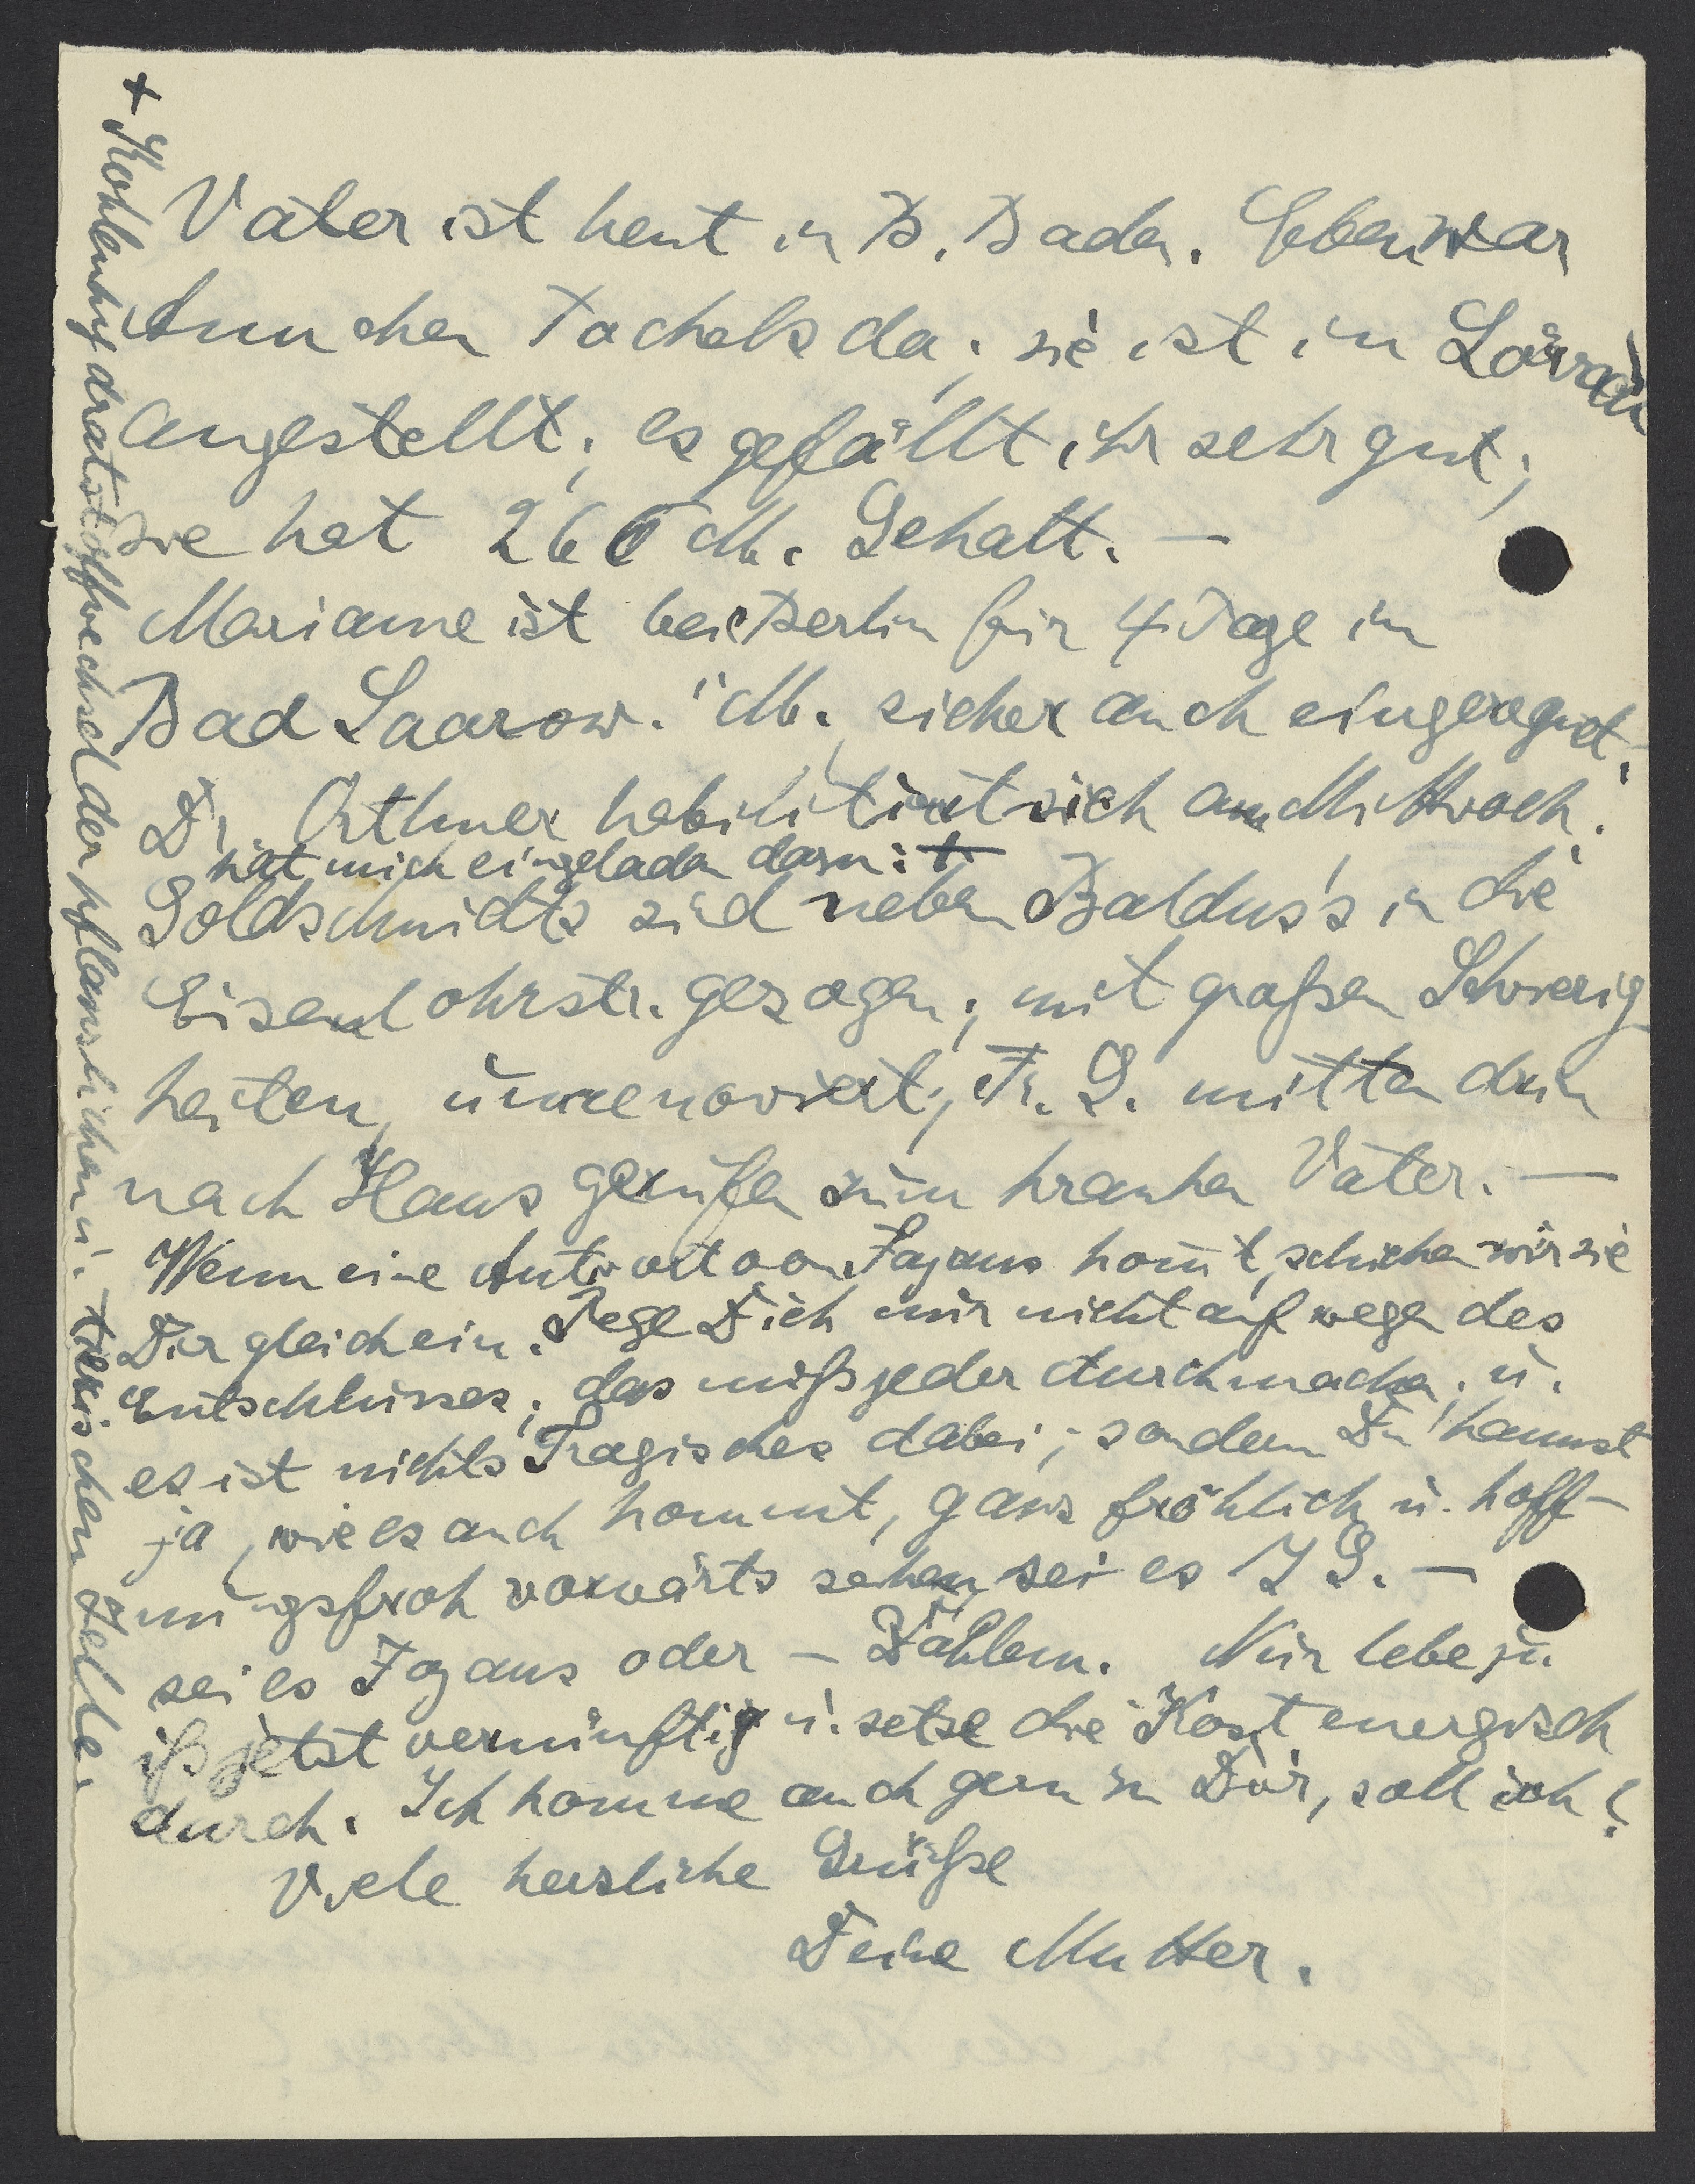 Vater ist heut in B. Baden. Eben war
Ännchen Tachels da; sie ist in Lörrach
angestellt; es gefällt ihr sehr gut;
sie hat 260 M. Gehalt. —
Marianne ist bei Berlin für 4 Tage in
Bad Saarow. M. sicher auch eingeregnet.
Dr. Orthner habilitiert sich am Mittwoch;
hat mich eingeladen dazu: +
Goldschmidts sind neben Baldus's in die
Eisenlohrstr. gezogen; mit großen Schwierig-
keiten, unrenoviert; Fr. G. mitten drin
nach Haus gerufen zum kranken Vater. —
Wenn eine Antwort von Fajans kom̄t, schicken wir sie
Dir gleich ein. Rege Dich nur nicht auf wegen des
Entschlusses; das muß jeder durchmachen, u.
es ist nichts Tragisches dabei; sondern Du kannst
ja, wie es auch kommt, ganz fröhlich u. hoff-
nungsfroh vorwärts sehen, sei es I G. —
sei es Fajans oder — Dahlem. Nur lebe u.
iß jetzt vernünftig u. setze die Kost energisch
durch. Ich komme auch gern zu Dir, soll ich?
Viele herzliche Grüße
Deine Mutter.
+ Kohlenhydratstoffwechsel der pflanzlichen u. tierischen Zelle.